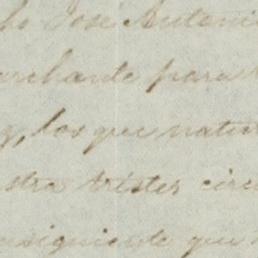 ho Jose Antoni
archante para
los que natur
stra tristes circ
nsiguiente que